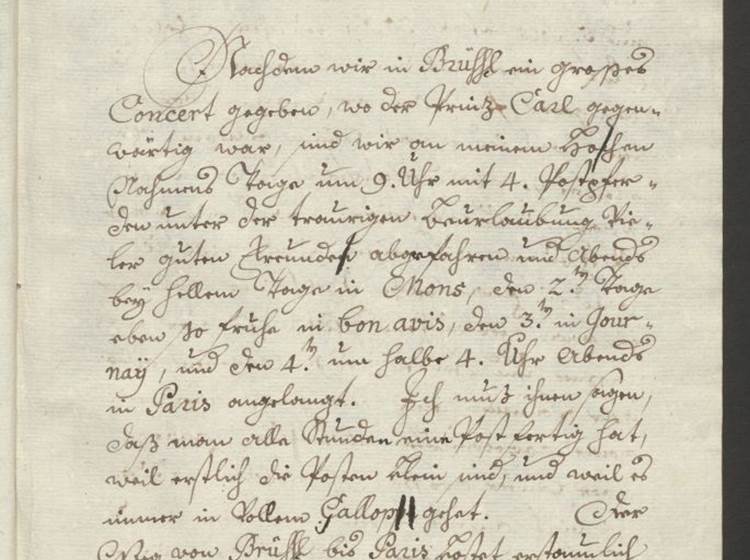 Nachdem wir in Brüßl ein grosses
Concert gegeben, wo der Printz Carl gegen-
wärtig war, sind wir an meinem Hochen
Nahmens Tage um 9. Uhr mit 4. Postpfer-
den unter der traurigen beurlaubung vie-
ler guten Freunden abgefahren und Abends
bey hellem Tage in Mons, den 2.ten Tage
eben so fruhe in bon avis, den 3.ten in Gour-
nay, und den 4.ten um halbe 4. Uhr Abends
in Paris angelangt. Ich muß ihnen sagen,
daß man alle Stunden eine Post fertig hat,
weil erstlich die Posten klein sind, und weil es
immer in Vollem Gallopp gehet. Der
Weg von Brüßl bis Paris kostet erstaunlich